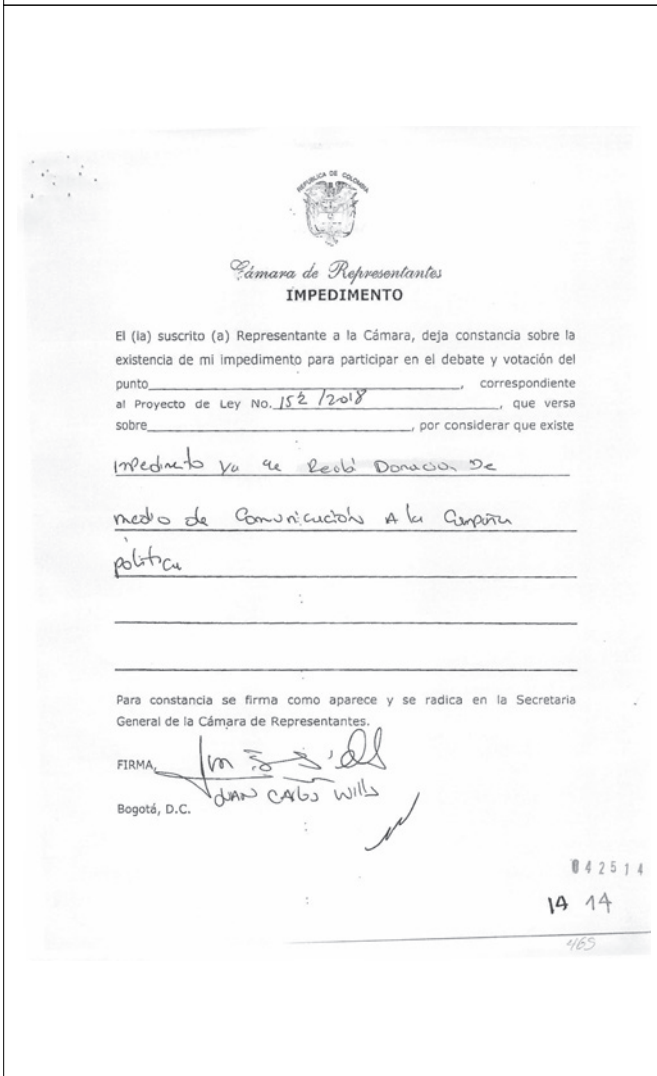 REPUBLICA DE COLOMBIA
Cámara de Representantes
IMPEDIMENTO
El (la) suscrito (a) Representante a la Cámara, deja constancia sobre la
existencia de mi impedimento para participar en el debate y votación del
punto, correspondiente
al Proyecto de Ley No. 152 /2018, que versa
sobre, por considerar que existe
impedimento ya que Recibí Donación De
medio de Comunicación A la Campaña
política
Para constancia se firma como aparece y se radica en la Secretaria
General de la Cámara de Representantes.
FIRMA,
JUAN CARLOS Wills
Bogotá, D.C.
042514
14 14
465